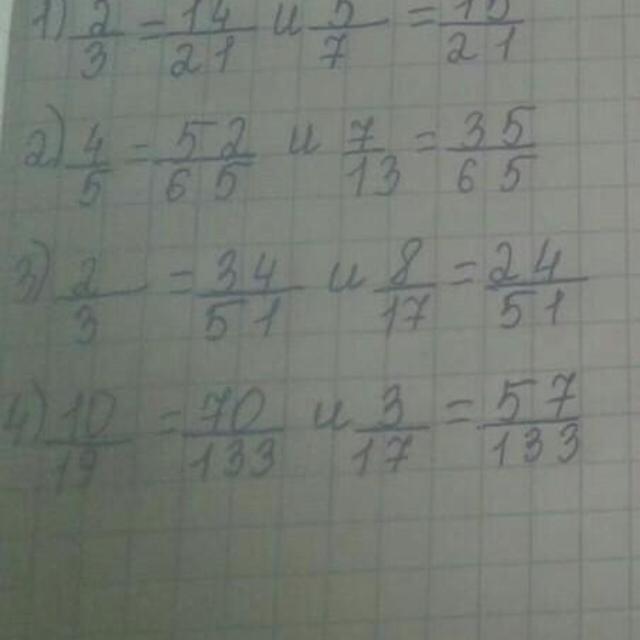 1) 2/3 = 14/21 и 5/7 = 15/21
2) 4/5 = 52/65 и 7/13 = 35/65
3) 2/3 = 34/51 и 8/17 = 24/51
4) 10/19 = 70/133 и 3/17 = 57/133